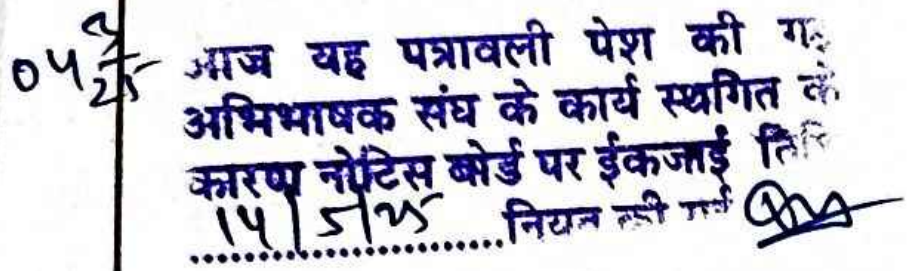 04
25
आज यह पत्रावली पेश की
अभिभाषक संघ के कार्य स्थगित के
कारण नोटिस बोर्ड पर ईकजाई
14/5/25 ....................नियत की गई